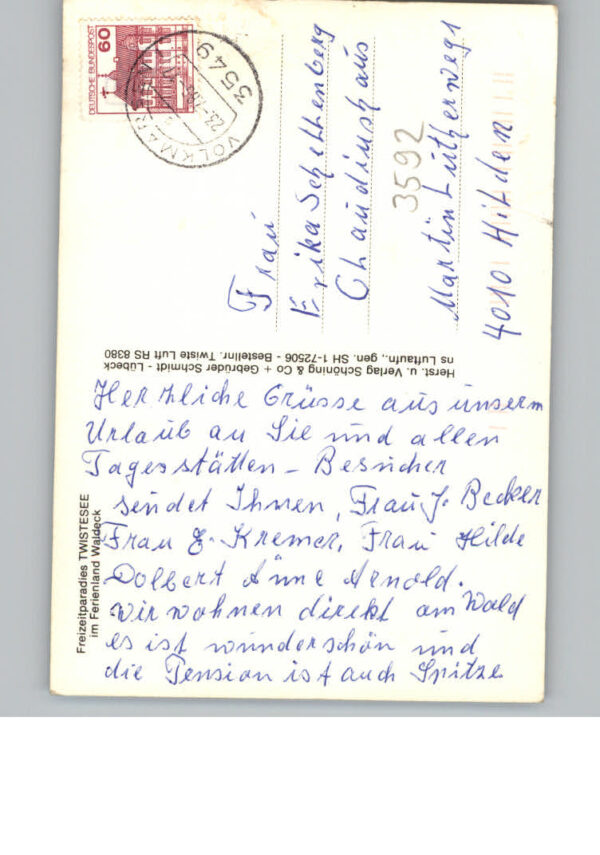 DEUTSCHE BUNDESPOST
60
3549
VOLKMARS
Frau
Erika Schettenberg
Claudiushaus
3592
Martin Lutherweg 1
4010 Hilden
Herst. u. Verlag Schöning & Co + Gebrüder Schmidt - Lübeck
ns Luftaufn., gen. SH 1-72506 - Bestellnr. Twiste Luft RS 8380
Freizeitparadies TWISTESEE
im Ferienland Waldeck
Herzliche Grüsse aus unserm
Urlaub an Sie und allen
Tagesstätten - Besucher
sendet Ihnen, Frau J. Becker
Frau E. Kremer, Frau Hilde
Dolbert Änne Arnold.
wir wohnen direkt am Wald
es ist wunderschön und
die Pension ist auch Spitze